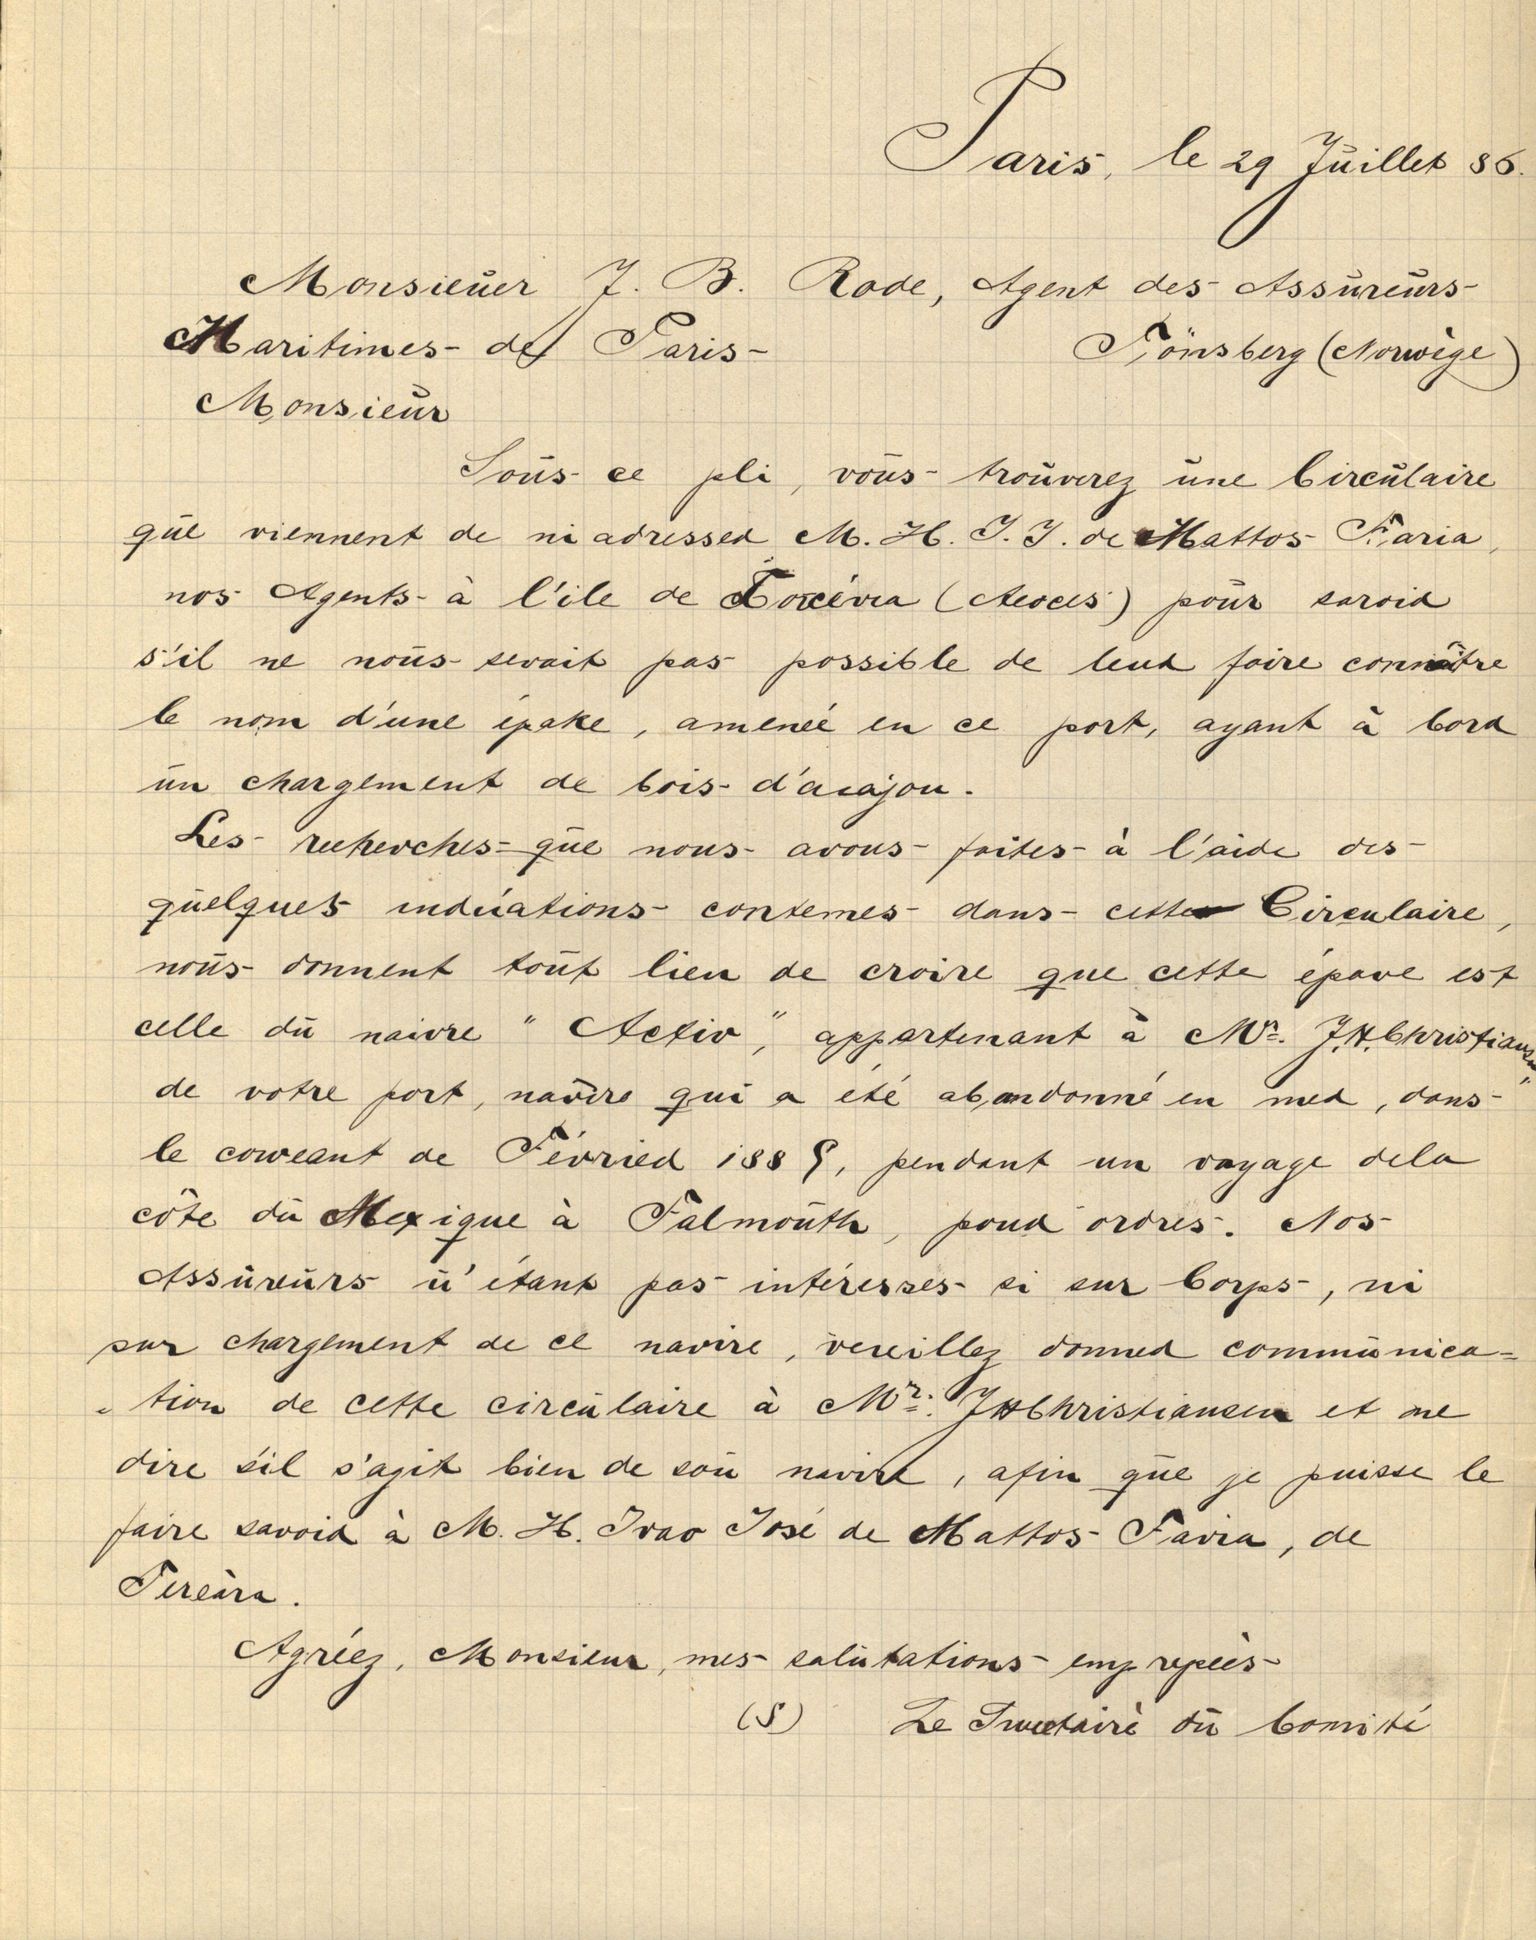 Paris, le 29 Juillet 86.
Monsieuer J. B. Rode, Agent des Assureurs
Maritimes de Paris
Tönsberg (Norwège)
Monsieur
Sous ce pli, vous trouverez une Circulaire
que viennent de m'adressed M. H. J. J. de Mattos Faria,
nos Agents à l'ile de (Acoces) pour savoid
s'il ne nous serait pas possible de leud faire connaître
le nom d'une épake, amenée en ce port, ayant à bord
un chargement de bois d'acajou.
Les recherches que nous avons faites à l'aide des
quelques indications contemes dans cette Circulaire,
nous donnent tout lieu de croire que cette épave est
celle du naivre "Activ", appartenant à Mr. J.H. Christiansen
de votre port, navire qui a été abandonné en med, dans
le coureant de Févried 1885, pendant un voyage de la
côte du Mexique à Falmouth, poud ordres. Nos
Assureurs n'étant pas intéresses si sur Corps, ni
sur chargement de ce navire, veuillez donned communica=
=tion de cette circulaire à Mr. J H Christiansen et me
dire s'il s'agit bien de son navire, afin que je puisse le
faire savoid à M. H. Ivao José de Mattos Favia, de
Terèira.
Agréez, Monsieur, mes salutations
(S) Le Secretairè du Comité